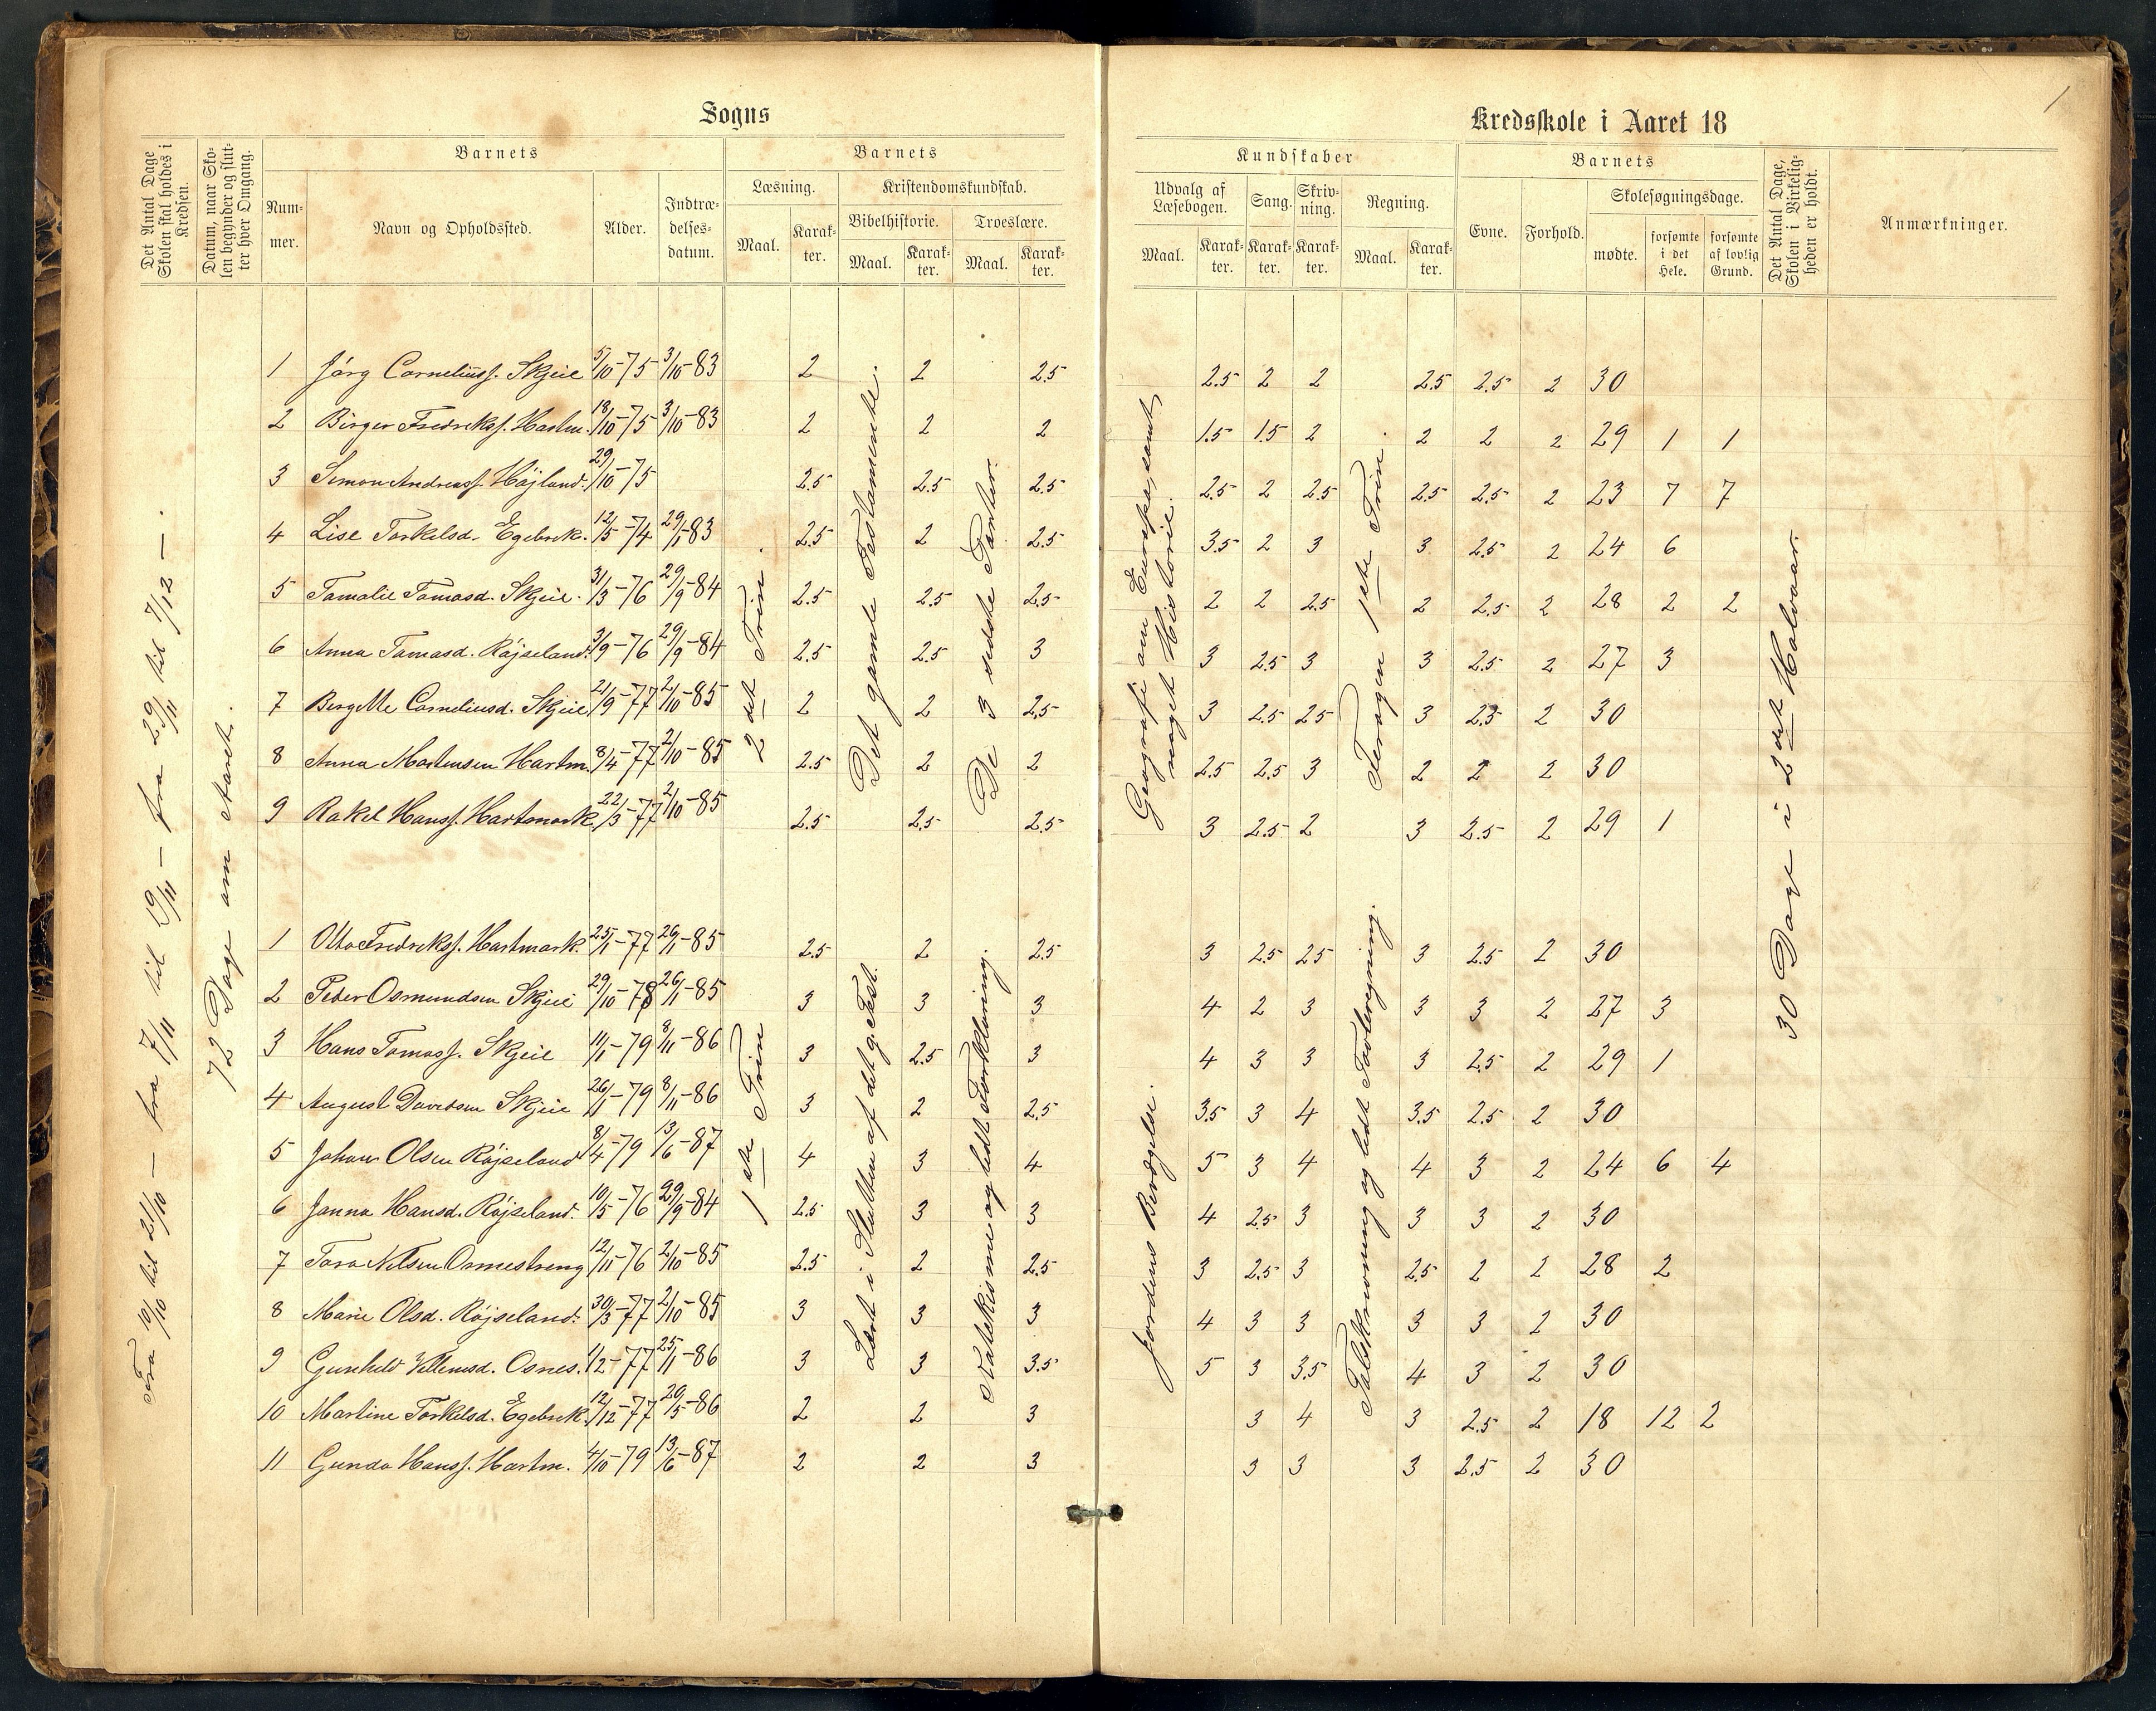 Sogns
Det Antal Dage Skolen skal holdes i Kredsen.
Datum, naar Skolen begynder og slutter hver Omgang.
Barnets
Nummer.
Navn og Opholdssted.
Alder.
Indtrædelsesdatum.
Barnets
Læsning.
Maal.
Karakter.
Kristendomskundskab.
Bibelhistorie.
Maal.
Karakter.
Troeslære.
Maal.
Karakter.
Fra 10/10 til 21/10 — fra 7/11 til 19/11 — fra 29/11 til 7/12 —.
72 Dage om Aaret.
2det Trin.
Det gamle Testamente.
De 3 sidste Parter.
1 Jörg Corneliuss. Skjeie 5/10-75 3/10-83 2 2 2.5
2 Birger Fredrekss. Hartm. 18/10-75 3/10-83 2 2 2
3 Simon Andreass. Höjland. 29/10-75 2.5 2.5 2.5
4 Lise Torkelsd. Egebrek. 12/5-74 29/1-83 2.5 2 2.5
5 Tomalie Tomasd. Skjeie. 31/3-76 29/9-84 2.5 2.5 2.5
6 Anna Tomasd. Röjseland. 3/9-76 29/9-84 2.5 2.5 3
7 Bergitte Corneliusd. Skjeie 21/9-77 2/10-85 2 2 2.5
8 Anna Mortensen Hartm. 8/4-77 2/10-85 2.5 2 2
9 Rakel Hanss. Hartmark. 22/3-77 2/10-85 2.5 2.5 2.5
1ste Trin
Læst i Slutten af det g. Test.
Katekisme og lidt Forklaring.
1 Otto Fredrekss. Hartmark. 25/1-77 26/1-85 2.5 2 2.5
2 Peder Osmundsen Skjeie 29/10-78 26/1-85 3 3 3
3 Hans Tomass. Skjeie 11/1-79 8/11-86 3 2.5 3
4 August Davidsen Skjeie 26/1-79 8/11-86 3 2 2.5
5 Johan Olsen Röjseland 8/4-79 13/6-87 4 3 4
6 Janna Hansd. Röjseland. 10/5-76 29/9-84 2.5 3 3
7 Tora Nilsen Ormestreng 12/11-76 2/10-85 2.5 2 2.5
8 Marie Olsd. Röjseland. 30/3-77 2/10-85 3 3 3
9 Gunhild Villemsd. Osnes. 1/2-77 25/11-86 3 3 3.5
10 Martine Torkelsd. Egebrek. 12/12-77 20/5-86 2 2 3
11 Gunda Hanss. Hartm. 4/10-79 13/6-87 2 2 3
1
Kredsskole i Aaret 18
Kundskaber
Udvalg af Læsebogen.
Maal.
Karakter.
Sang.
Karakter.
Skrivning.
Karakter.
Regning.
Maal.
Karakter.
Barnets
Evne.
Forhold.
Skolesøgningsdage.
mødte.
forsømte i det Hele.
forsømte af lovlig Grund.
Det Antal Dage, Skolen i Virkeligheden er holdt.
Anmærkninger.
Geografi om Europa, samt
noget Historie.
1ste Trin.
30 Dage i 2det Halvaar.
2.5 2 2 2.5 2.5 2 30
1.5 1.5 2 2 2 2 29 1 1
2.5 2 2.5 2.5 2.5 2 23 7 7
3.5 2 3 3 2.5 2 24 6
2 2 2.5 2 2.5 2 28 2 2
3 2.5 3 3 2.5 2 27 3
3 2.5 2.5 3 2.5 2 30
2.5 2.5 3 2 2 2 30
3 2.5 2 3 2.5 2 29 1
Jordens Bevægelse.
Talskrivning og lidt Tavleregning.
3 2.5 2.5 3 2.5 2 30
4 2 3 3 3 2 27 3
4 3 3 3 2.5 2 29 1
3.5 3 4 3.5 2.5 2 30
5 3 4 4 3 2 24 6 4
4 2.5 3 3 3 2 30
3 2.5 3 2.5 2 2 28 2
4 3 3 3 3 2 30
5 3 3.5 4 3 2 30
3 4 3 2.5 2 18 12 2
3 3 3 2.5 2 30